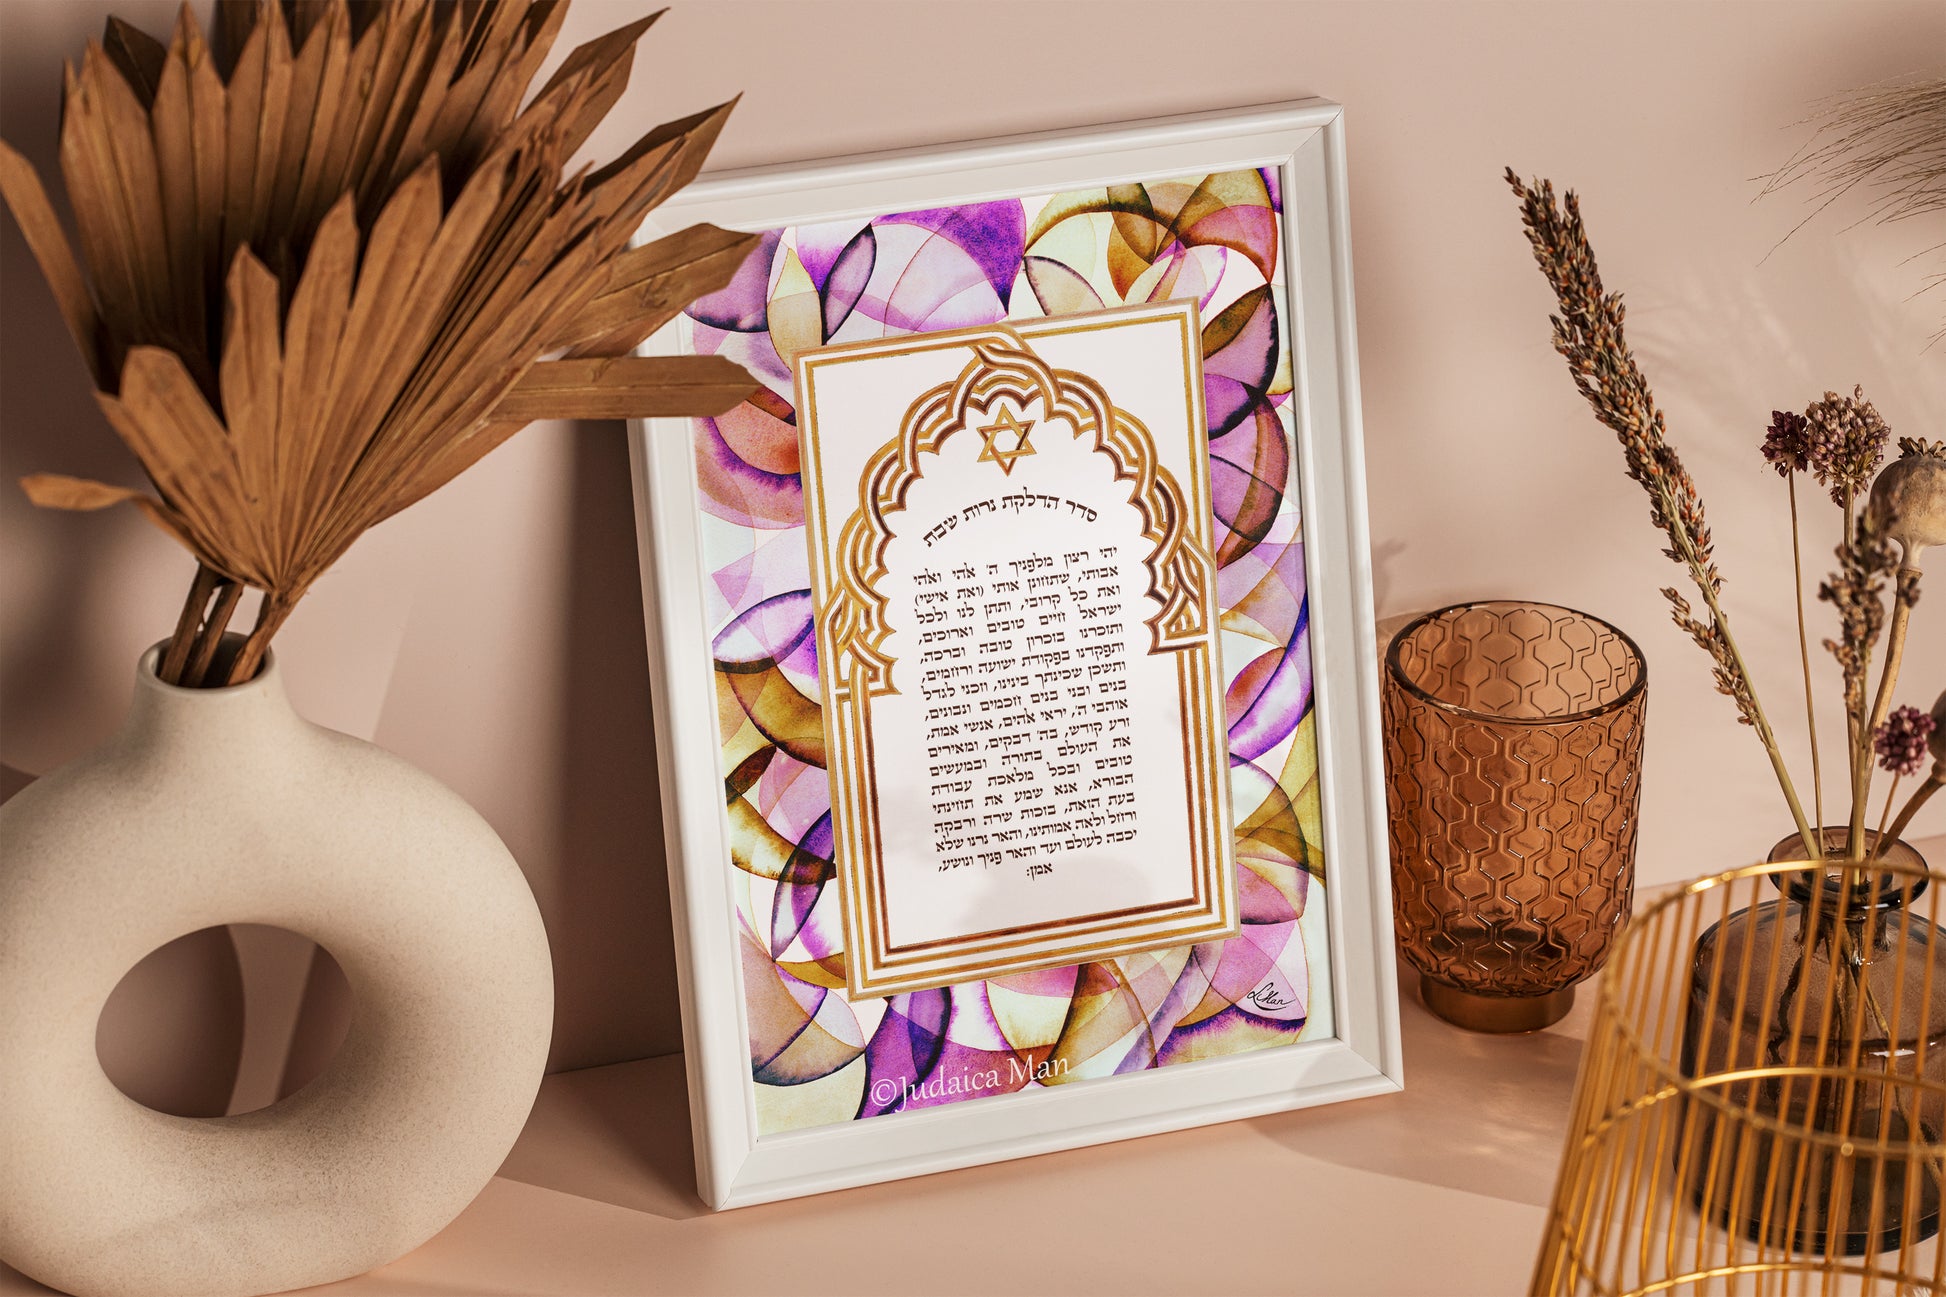 סדר הדלקת נרות שבת
יהי רצון מלפניך ה׳ אלהי ואלהי
אבותי, שתחונן אותי (ואת אישי)
ואת כל קרובי, ותתן לנו ולכל
ישראל חיים טובים וארוכים,
ותזכרנו בזכרון טובה וברכה,
ותפקדנו בפקודת ישועה ורחמים,
ותשכן שכינתך בינינו, וזכני לגדל
בנים ובני בנים חכמים ונבונים,
אוהבי ה׳, יראי אלהים, אנשי אמת,
זרע קודש, בה׳ דבקים, ומאירים
את העולם בתורה ובמעשים
טובים ובכל מלאכת עבודת
הבורא, אנא שמע את תחינתי
בעת הזאת, בזכות שרה ורבקה
ורחל ולאה אמותינו, והאר נרנו שלא
יכבה לעולם ועד והאר פניך ונושע,
אמן:
L Man
©Judaica Man